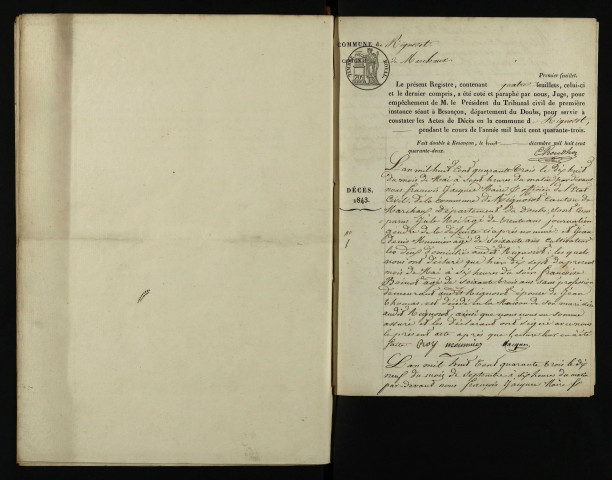 COMMUNE de Rignosot
CANTON de Marchaux
TIMBRE ROYAL
Premier feuillet.
Le présent Registre, contenant quatre feuillets, celui-ci
et le dernier compris, a été coté et paraphé par nous, Juge, pour
empêchement de M. le Président du Tribunal civil de première
instance séant à Besançon, département du Doubs, pour servir à
constater les Actes de Décès en la commune de Rignosot,
pendant le cours de l'année mil huit cent quarante-trois.
Fait double à Besançon, le huit décembre mil huit cent
quarante-deux.
DÉCÈS.
1843.
N° 1
L'an mil huit cent quarante trois le dix huit
du mois de Mai à sept heures du matin par devant
nous françois Jacques Maire et officier de l'Etat
Civil de la Commune de Rignosot Canton de
Marchaux, département du Doubs, sont com
parus âgé de trente ans journalier
gendre de la défunte ci après nommé et Jean
denis Mounnier âgé de soixante ans cultivateur
les deux domiciliés audit Rignosot, les quels
nous ont déclaré que hier dix sept du présent
mois de Mai à six heures du soir françoise
Boinot âgé de soixante trois ans sans profession
demeurant audit Rignosot épouse de Jean
Thomas, est décédé en la Maison de son mari sise
audit Rignosot, ainsi que nous nous en somme
assuré et les déclarant ont signé avec nous
le présent acte après que lecture leur en a été
faite Roy mounnier Jacques
L'an mil huit Cent quarante trois le dix
neuf du mois de Septembre à dix heures du matin
par devant nous françois Jacques Maire et